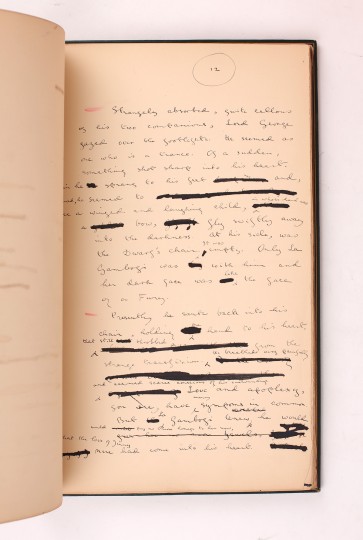 12
Strangely absorbed, quite callous
of his two companions, Lord George
gazed over the footlights. He seemed as
one who is in a trance. Of a sudden,
something shot sharp into his heart.
he sprang to his feet and,
he seemed to
a winged and laughing child,
bow, fly swiftly away
into the darkness. At his side, was
the Dwarf's chair, empty. Only La
Gambogi was with him and
her dark face was like the face
of a Fury.
Presently he sank back into his
chair, holding hand to his heart,
that still throbbed from the
strange
and seemed scarce conscious of his
Love and apoplexy,
you see, have symptoms in common
But La Gambogi knew he would
that the love of Jenny
Mere had come into his heart